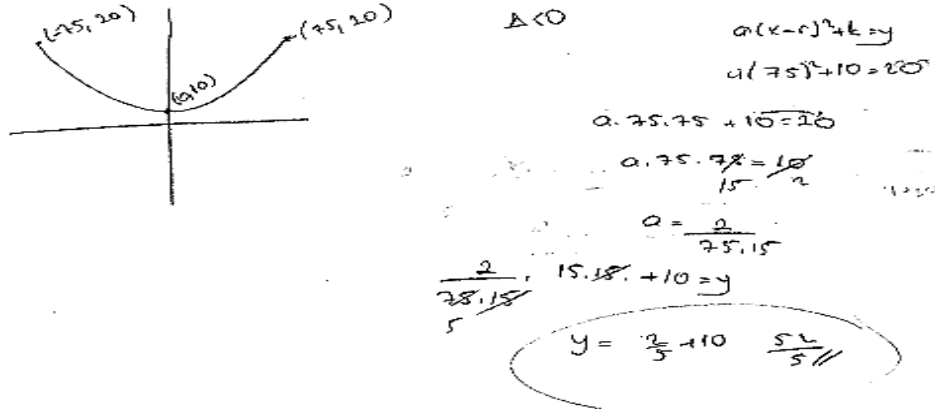 (-75, 20)
(75, 20)
(0,10)
Δ<0
a(x-r)²+k=y
a(75)²+10=20
a.75.75 +10=20
a.75.75=10
15 2
a = 2/75.15
2/75.15 . 15.15. +10=y
5
y = 2/5 +10 52/5 //